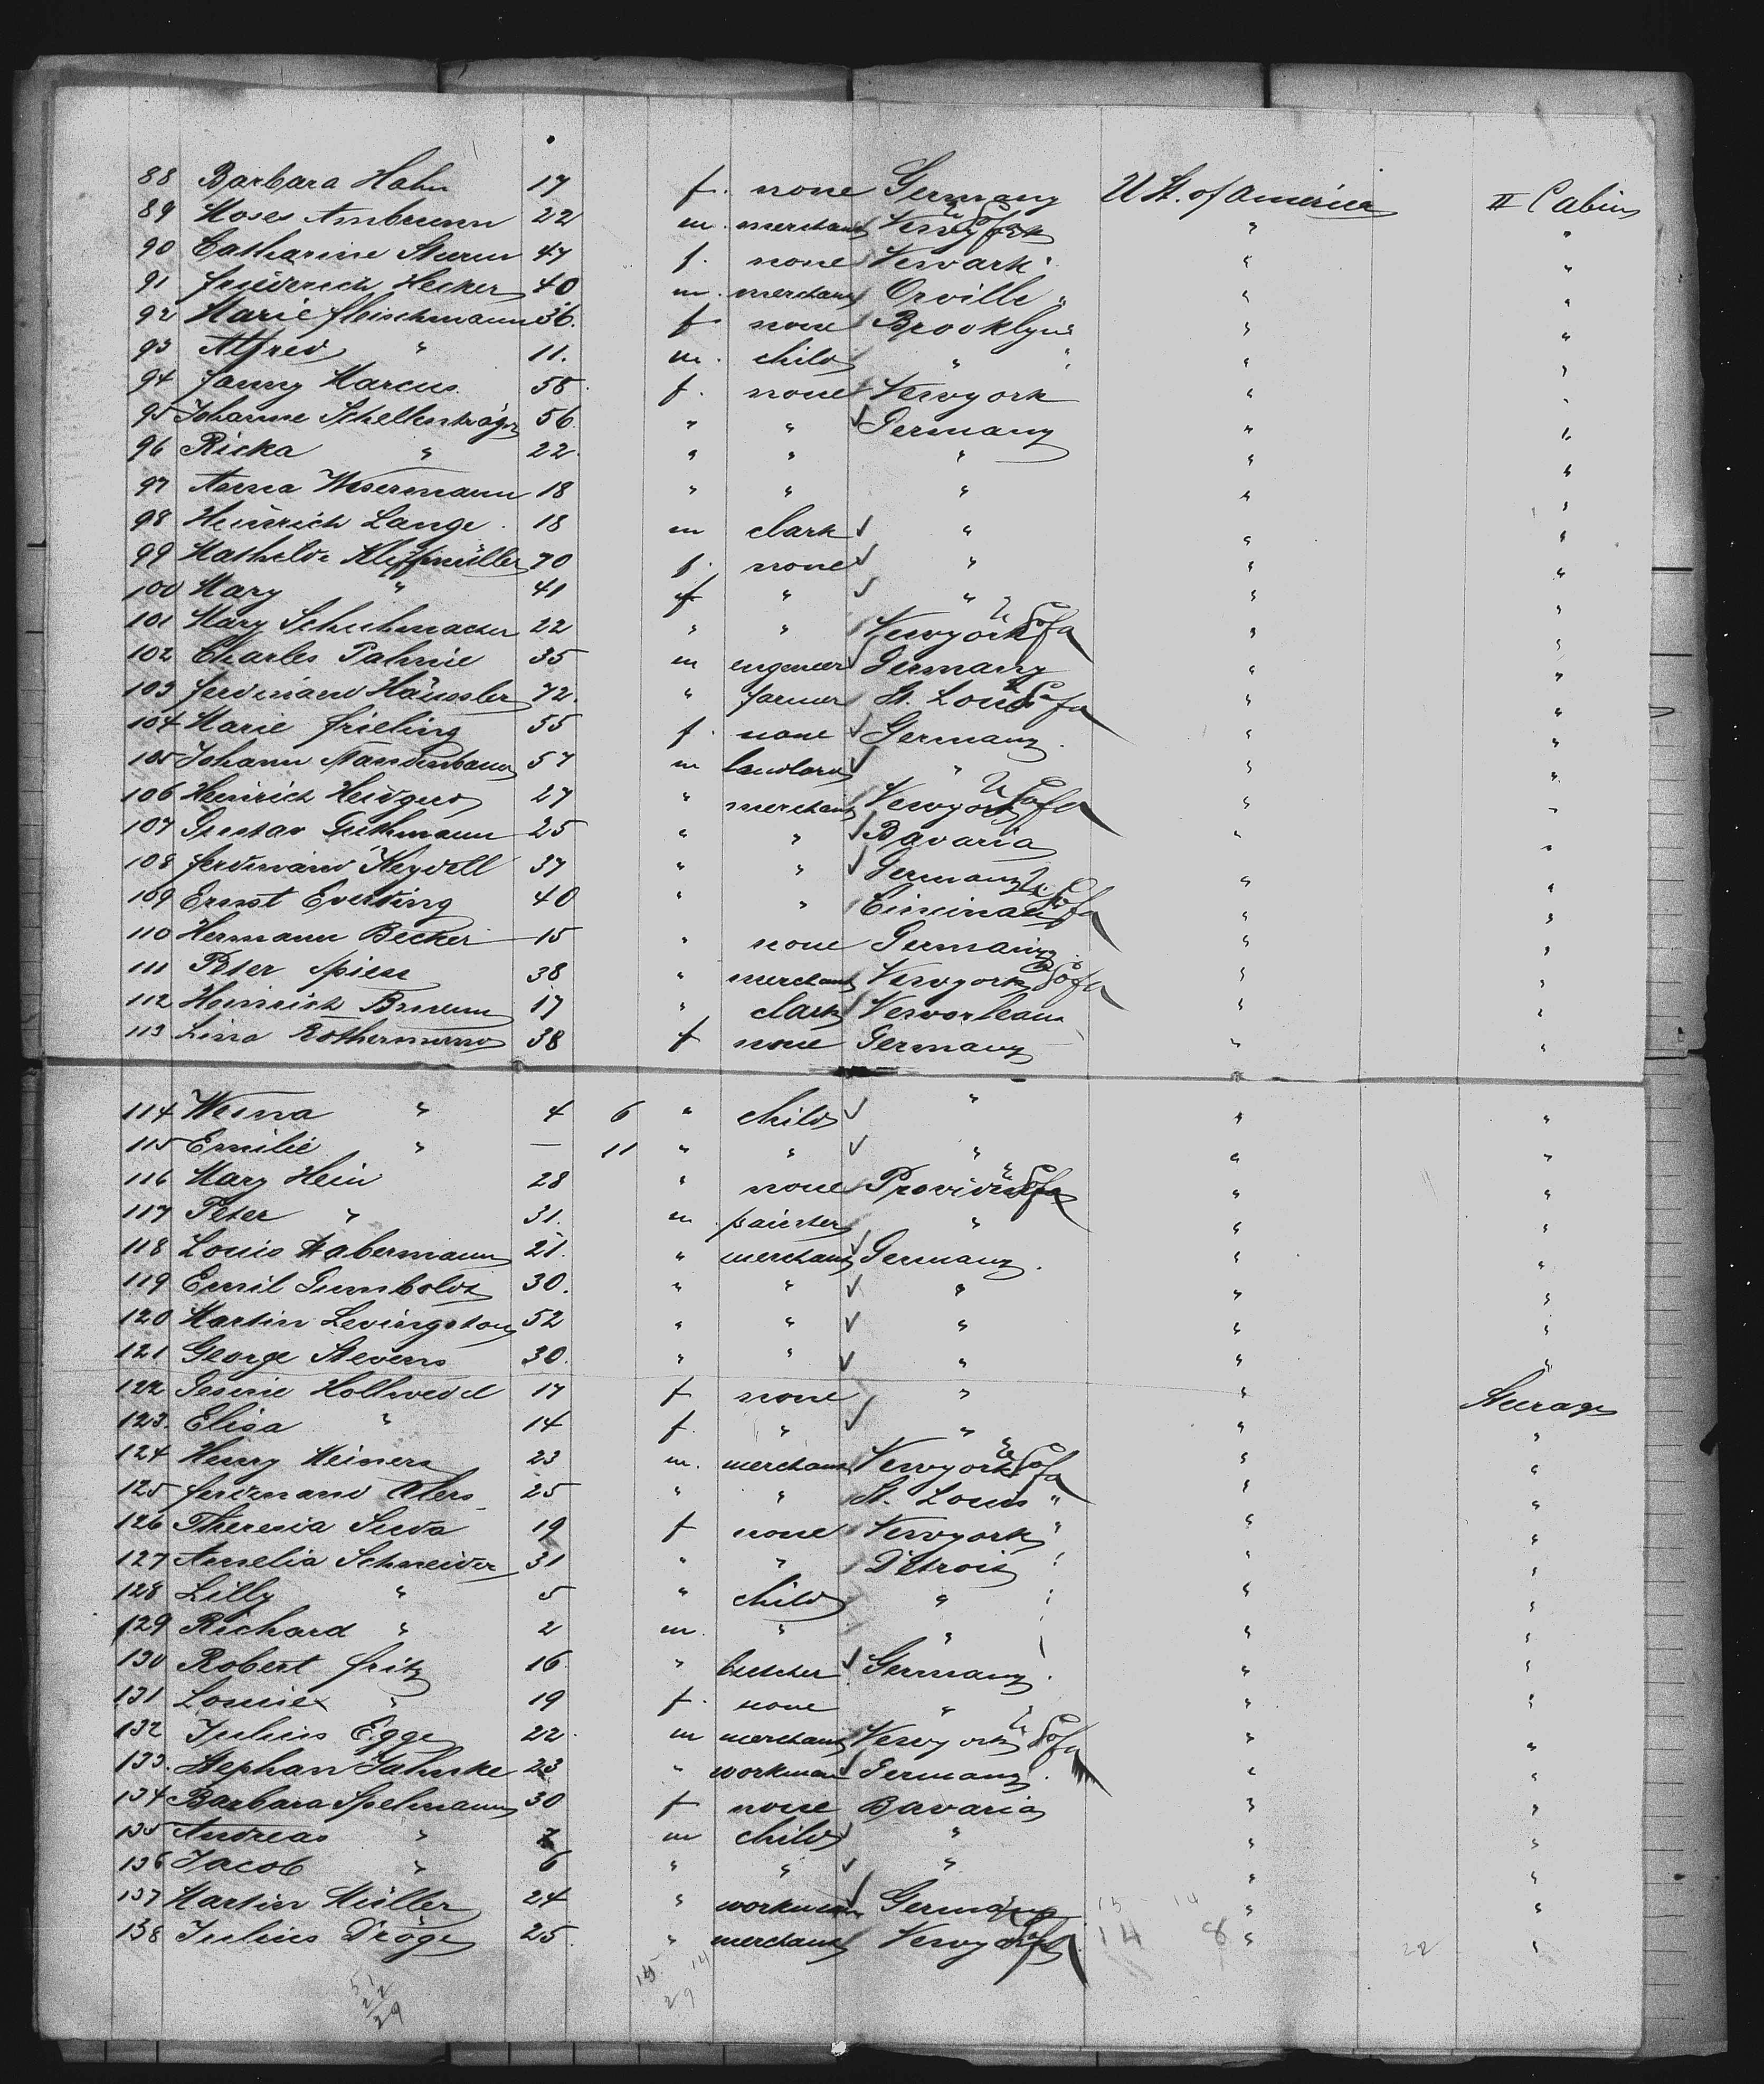 88 Barbara Hahn 17 f. none Germany U St. of America II Cabin
89 Moses Ambrunn 22 m. merchant Newyork " "
90 Catharine Sturm 47 f. none Newark " " "
91 Friederich Hecker 40 m. merchant Orville " " "
92 Marie Fleischmann 36. f none Brooklyn " " "
93 Alfred " 11. m. child " " " "
94 Fanny Marcus 58. f. none Newyork " "
95 Johanne Schellenträger 56. " " Germany " "
96 Ricka " 22. " " " " "
97 Anna Wesermann 18 " " " " "
98 Heinrich Lange 18 m clark " " "
99 Mathilde Kleffmüller 70 f. none " " "
100 Mary " 41 f " " " "
101 Mary Schuhmacher 22 " " Newyork " "
102 Charles Palmie 35 m engeneer Germany " "
103 Ferdinand Häussler 72. " farmer St. Louis " "
104 Marie Frieling 55 f. none Germany " "
105 Johann 57 m landlord " " "
106 Heinrich 27 " merchant Newyork " "
107 Gustav Guthmann 25 " " Bavaria " "
108 Ferdinand Heydell 37 " " Germany " "
109 Ernst Everding 40 " " " "
110 Hermann Becker 15 " none Germany " "
111 Peter Spiess 38 " merchant Newyork " "
112 Heinrich 17 " clark Neworleans " "
113 Lina Rothermund 38 f none Germany " "
114 " 4 6 " child " " "
115 Emilie " — 11 " " " " "
116 Mary Hein 28 " none " "
117 Peter " 31. m painter " " "
118 Louis Habermann 21. " merchant Germany " "
119 Emil Gumbold 30. " " " " "
120 Martin Levingston 52 " " " " "
121 George Stevens 30. " " " " "
122 Gesine 17 f none " " Steerage
123. Elisa " 14 f. " " " "
124 Henry Meiners 23 m. merchant Newyork " "
125 Ferdinand Alers 25 " " St. Louis " " "
126 Theresia 19 f none Newyork " " "
127 Amelia Schneider 31 " " Detroit " "
128 Lilly " 5 " child " " "
129 Richard " 2 m. " " " "
130 Robert Fritz 16 " butcher Germany " "
131 Louise " 19 f. none " " "
132 Julius Egge 22 m merchant Newyork " "
133. Stephan Jahnke 23 " workman Germany " "
134 Barbara Spelmann 30 f none Bavaria " "
135 Andreas " m child " " "
136 Jacob " 6 " " " " "
137 Martin Müller 24 " workman Germany " "
138 Julius Dröge 25. " merchant Newyork 14 8 " 22 "
29 29